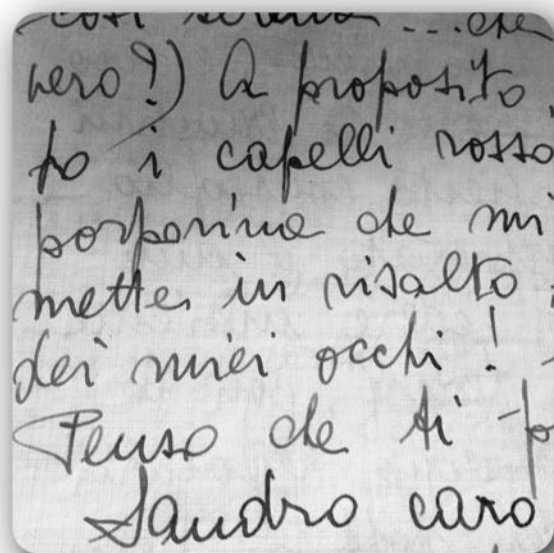 così serena ... che
vero?) A proposito,
po i capelli rosso
porporina che mi
mette in risalto
dei miei occhi!
Penso che ti fo
Sandro caro